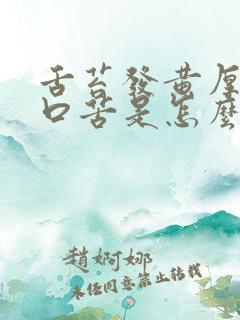 舌苔發黄厚
口苦是怎麽
趙婀娜
未经同意禁止转载